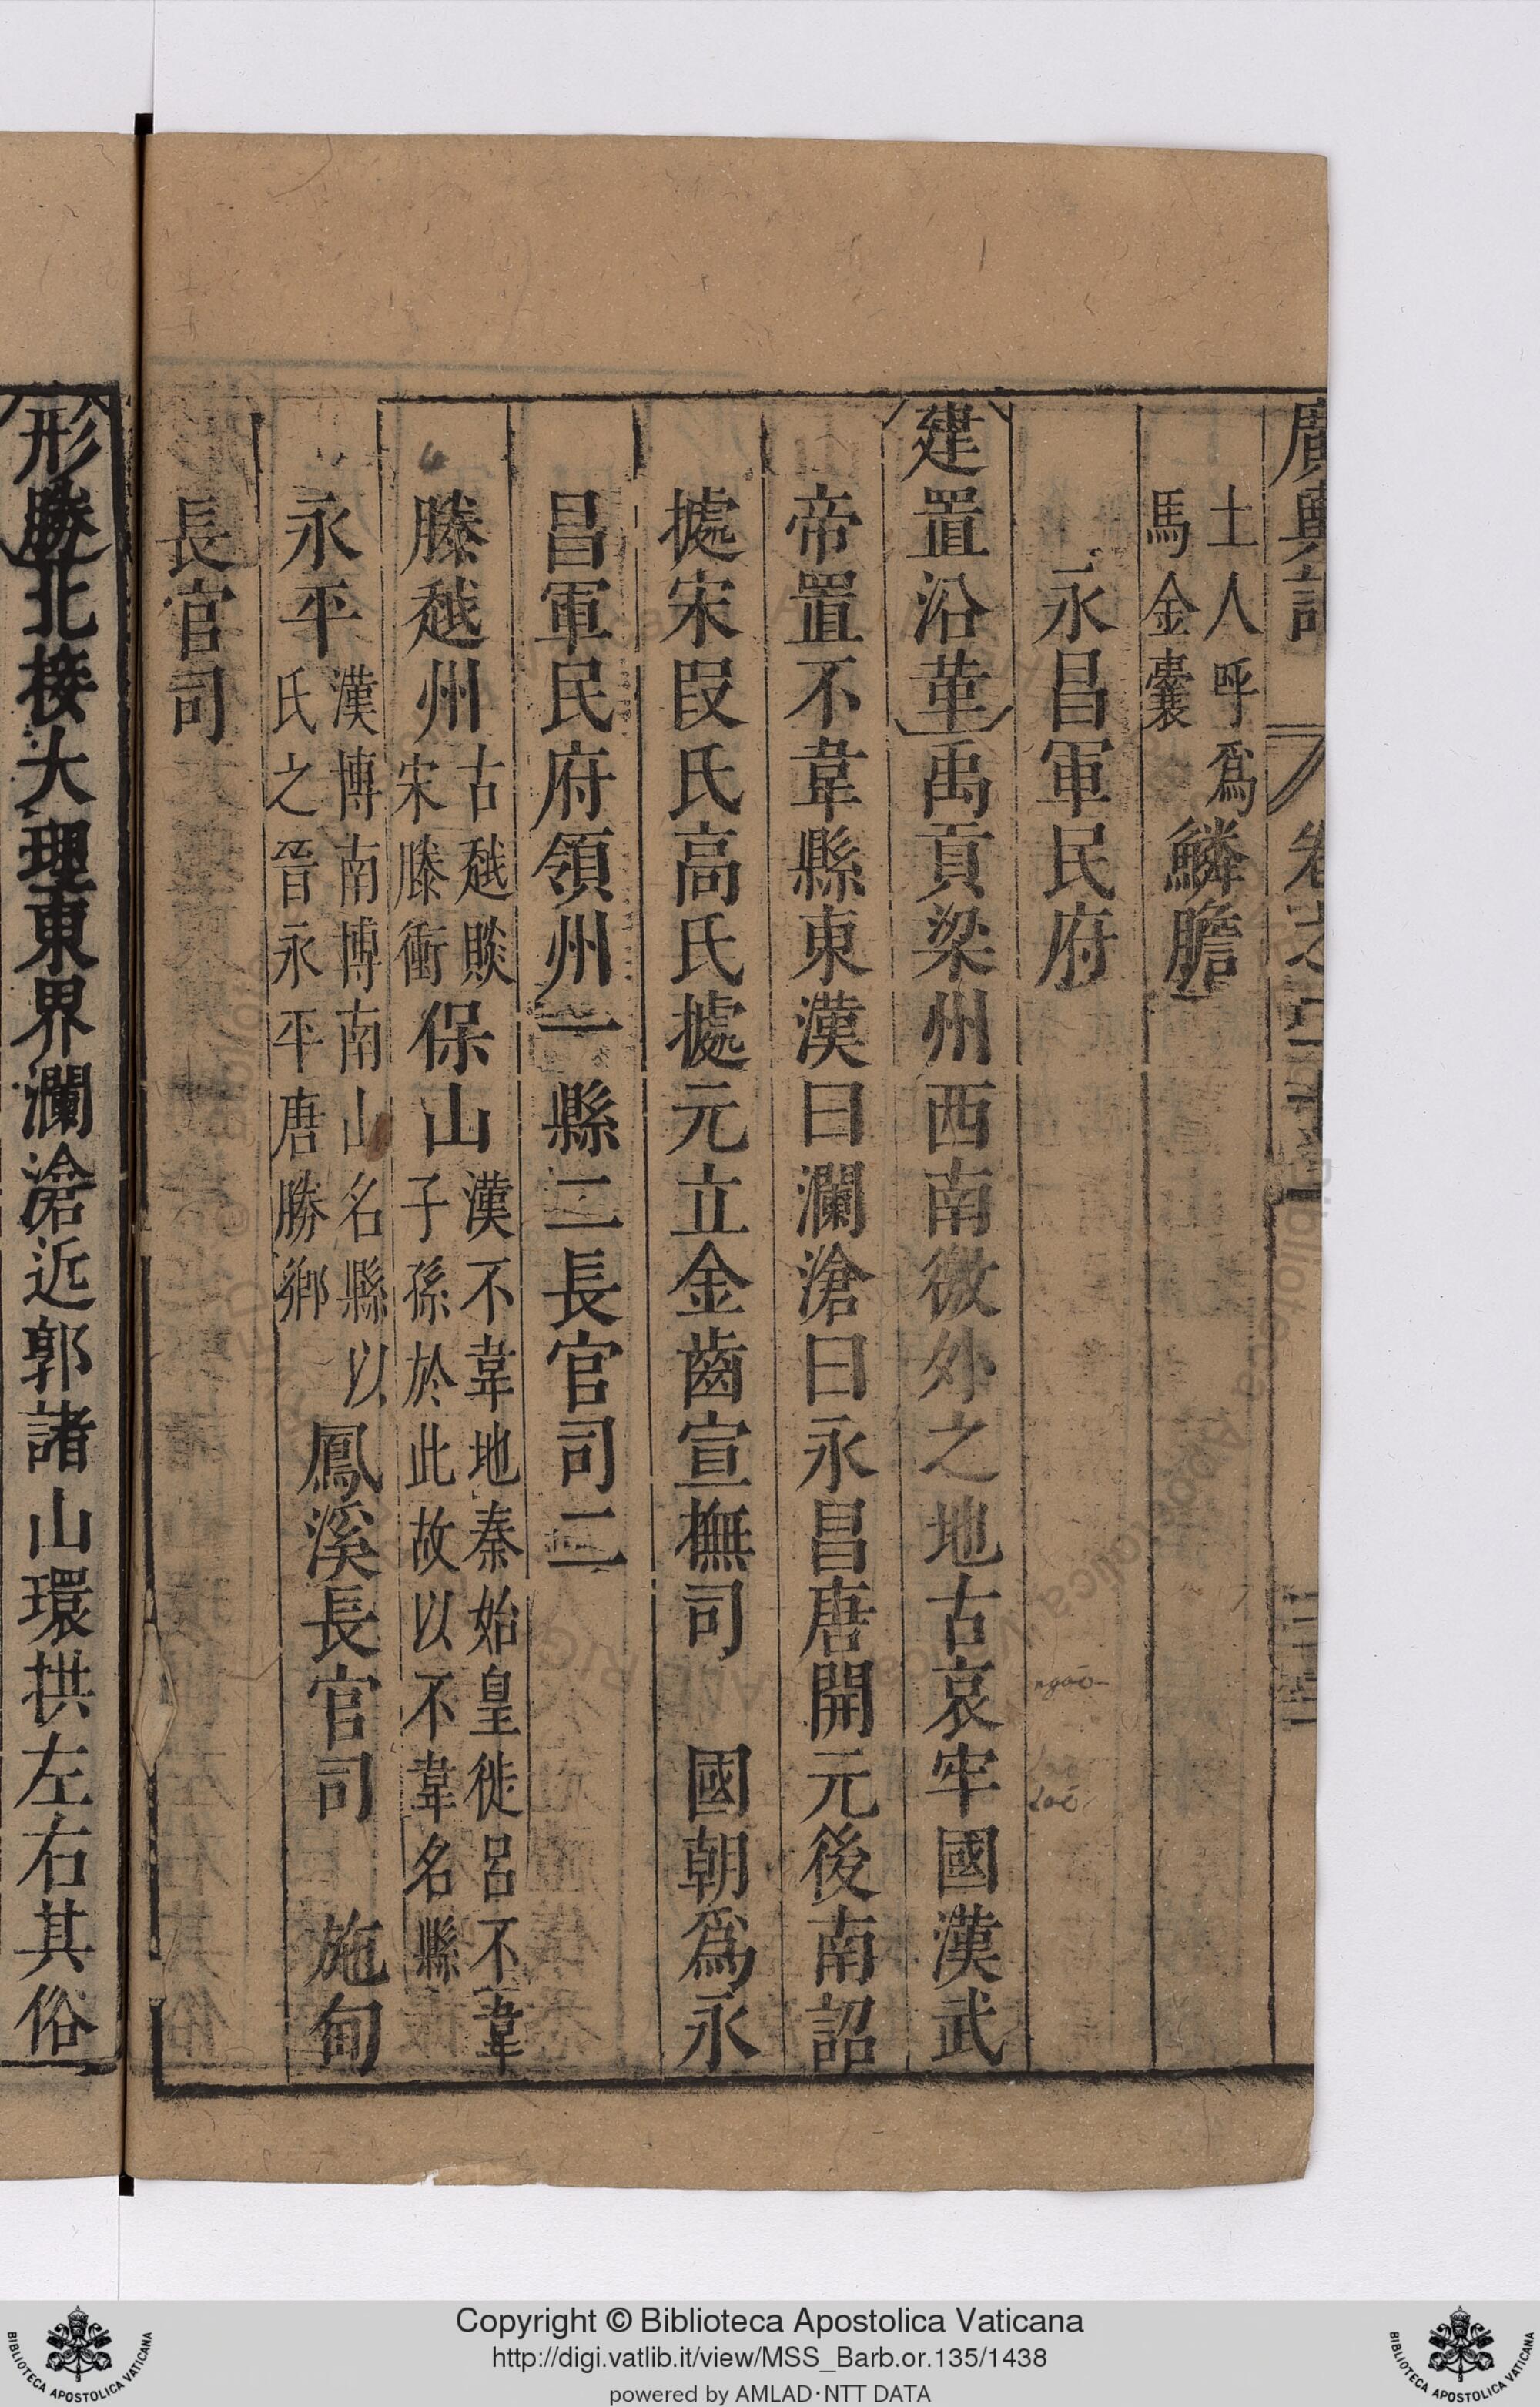 廣輿記 卷之二十一
土人呼爲
馬金囊
鱗膽
永昌軍民府
建置沿革禹貢梁州西南徼外之地古哀牢國漢武
帝置不韋縣東漢曰瀾滄曰永昌唐開元後南詔
據宋段氏高氏據元立金齒宣撫司 國朝爲永
昌軍民府領州一縣二長官司二
騰越州古越賧宋騰衝保山漢不韋地秦始皇徙呂不韋子孫於此故以不韋名縣
永平漢博南博南山名縣以氏之晉永平唐勝鄉鳳溪長官司 施甸
長官司
形勝北接大理東界瀾滄近郭諸山環拱左右其俗
ngāo
laô
Copyright © Biblioteca Apostolica Vaticana
http://digi.vatlib.it/view/MSS_Barb.or.135/1438
powered by AMLAD·NTT DATA
BIBLIOTECA APOSTOLICA VATICANA
BIBLIOTECA APOSTOLICA VATICANA